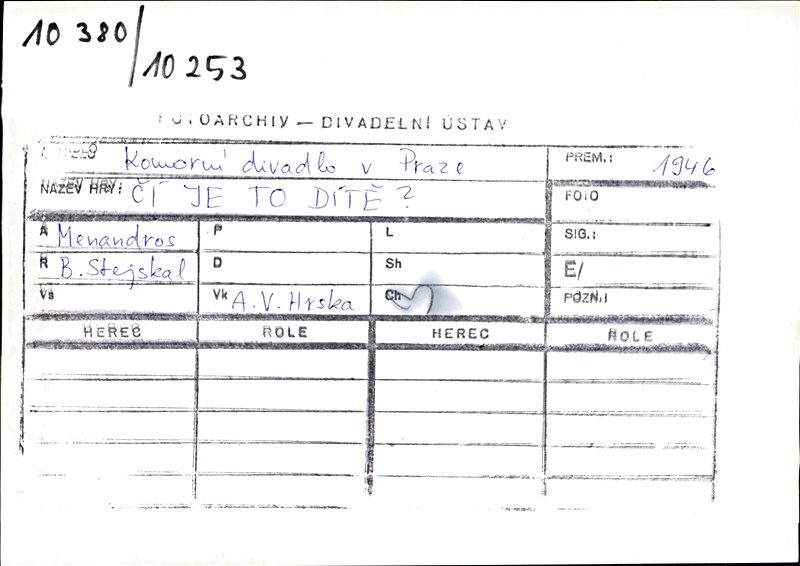 10 380/
10 253
FOTOARCHIV — DIVADELNÍ ÚSTAV
Komorní divadlo v Praze PREM.: 1946
NÁZEV HRY: ČÍ JE TO DÍTĚ? FOTO
A Menandros P L SIG.:
R B. Stejskal D Sh E/
Vs Vk A.V. Hrska Ch POZN.:
HEREC ROLE HEREC ROLE